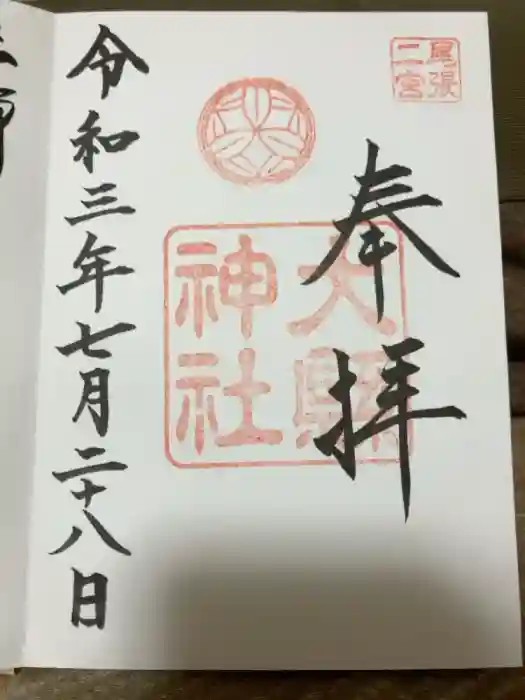 尾張
二宮
奉拝
大縣
神社
令和三年七月二十八日